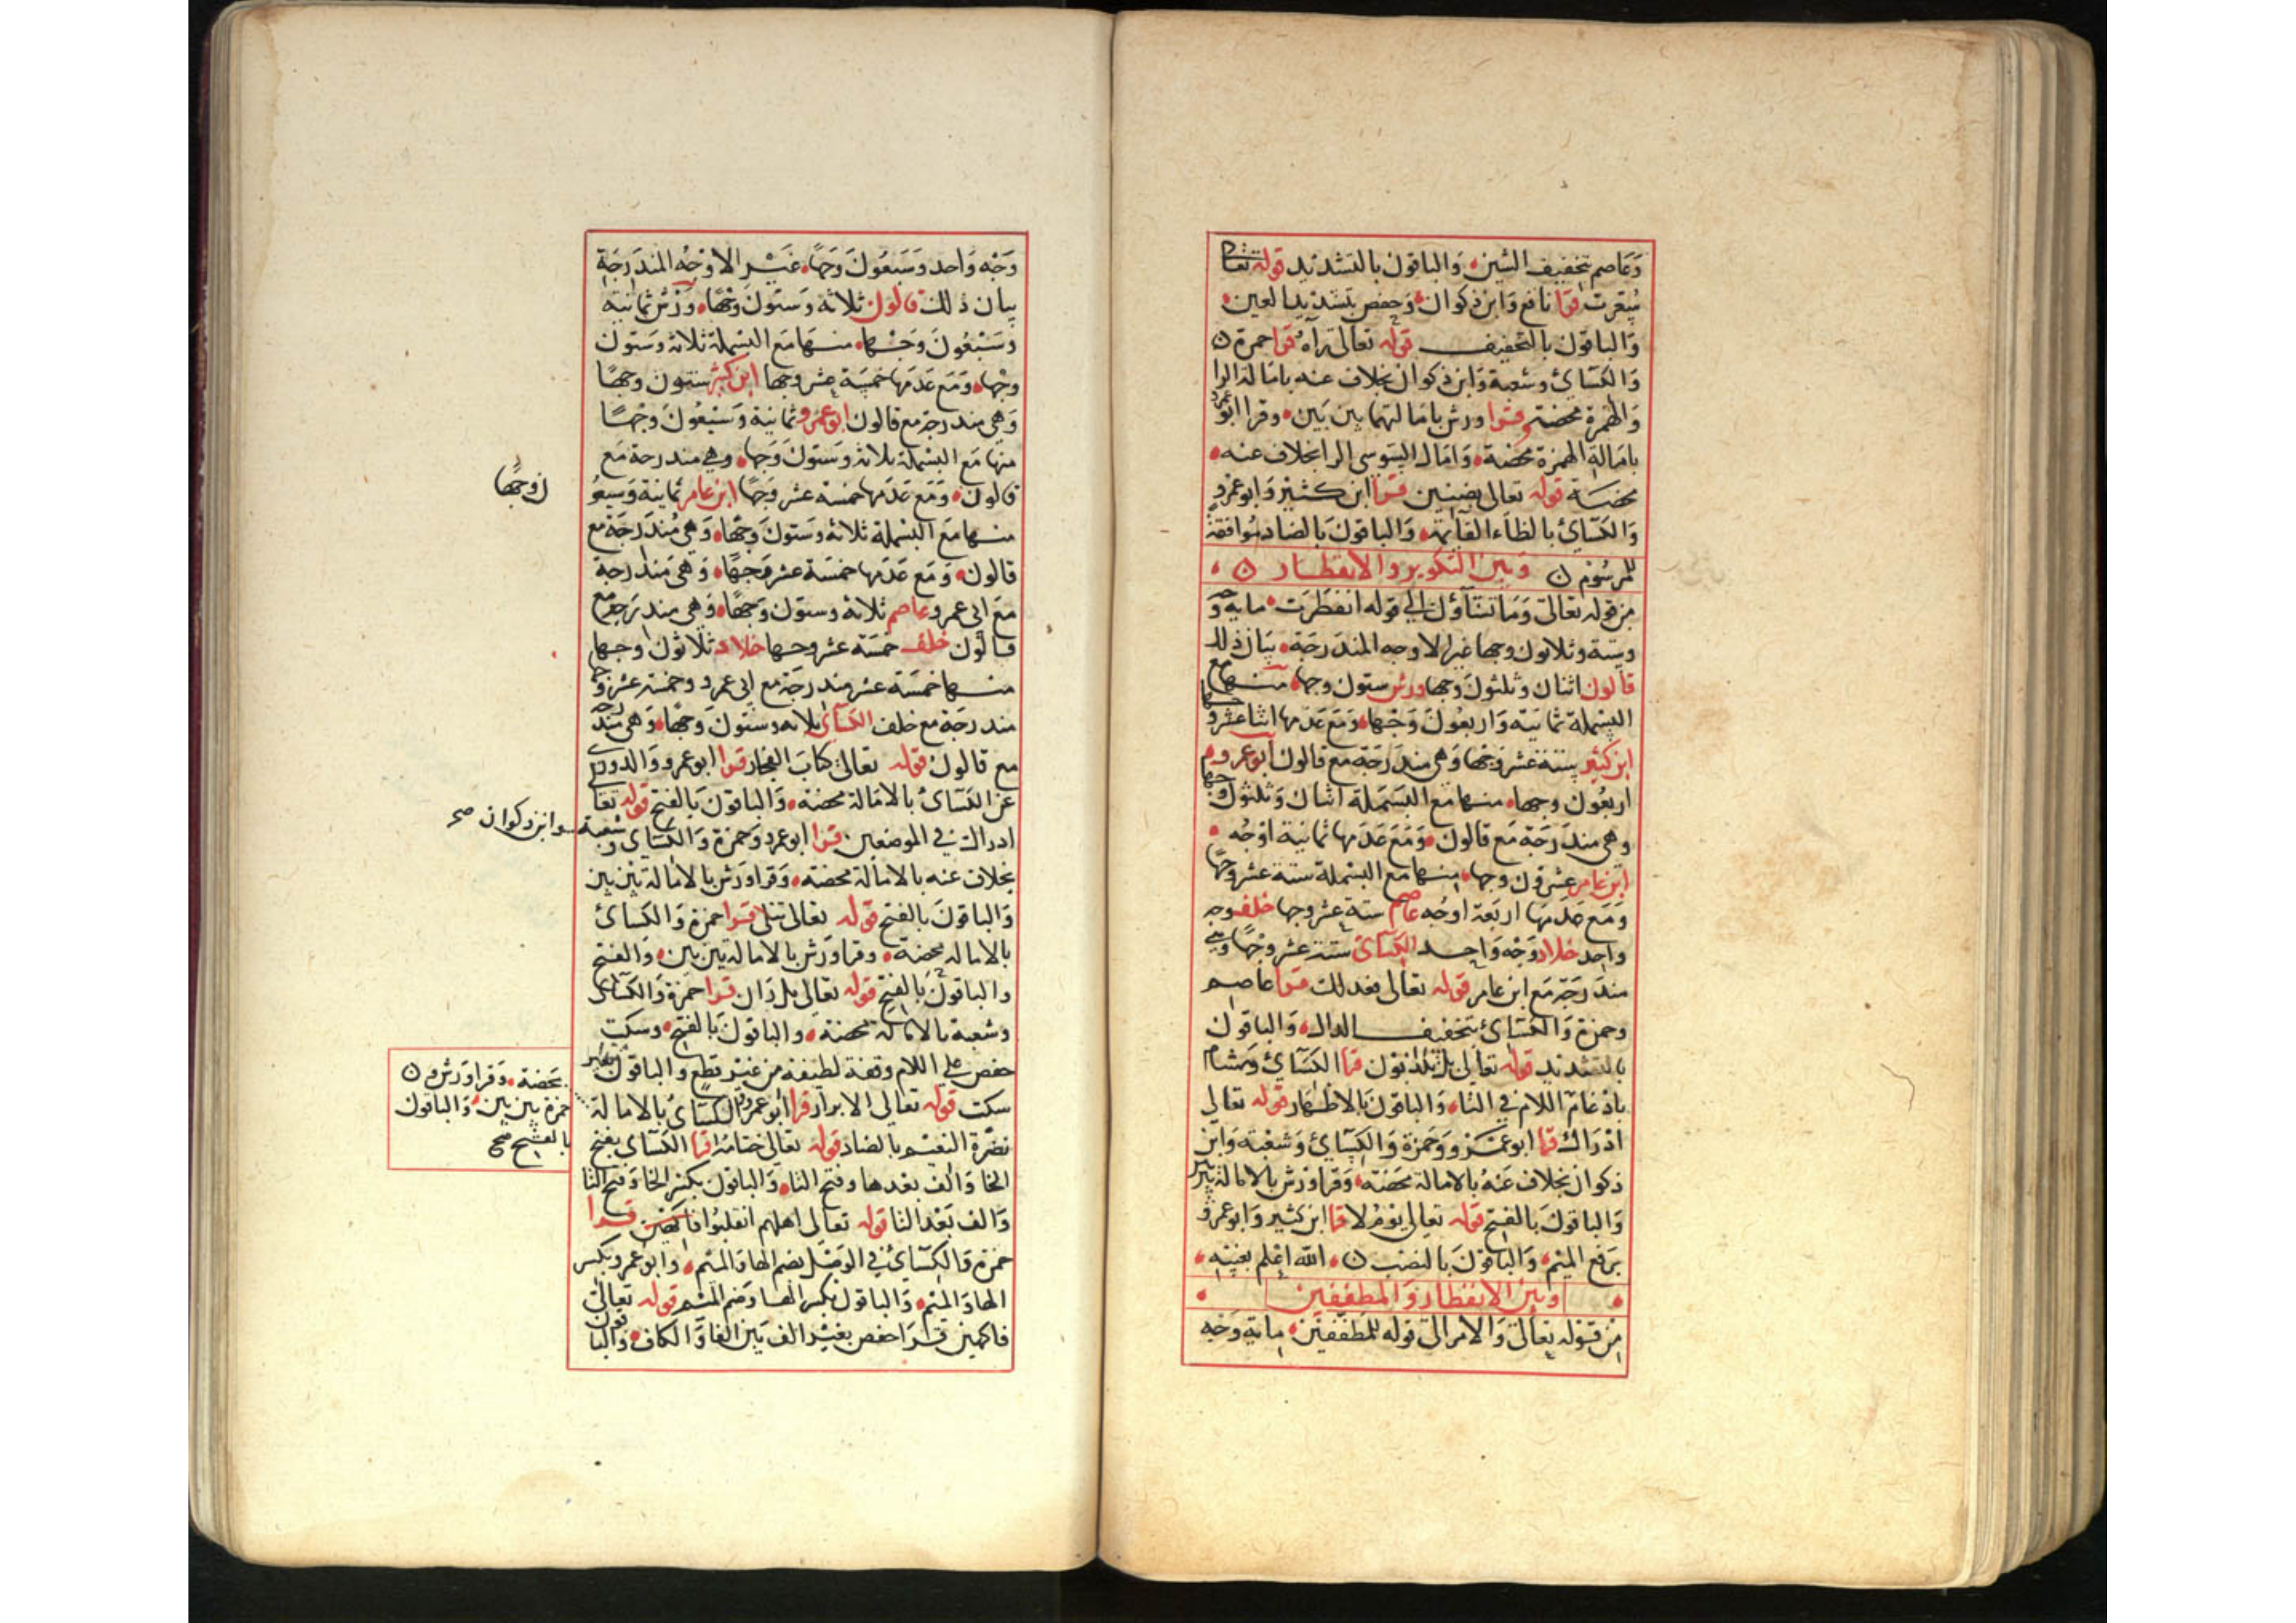 وَعَاصم بتخفيف الشين، وَالباقون بالتشديد قوله تعالى
سُعِّرت قرا نافع وَابن ذكوان، وَحفص بتشديد العين،
وَالباقون بالتخفيف قوله تعالى رَآهُ قرا حمزة
وَالكسَائ وشعبة وَابن ذكوان بخلاف عنه بامَالة الرا
وَالهمزة محضة وقرا ورش بامَالتهما بين بَين، وقرا ابو عمرو
بامَالة الهمزة محضة، وَامَال السوسي الرا بخلاف عنه،
محضة قوله تعالى بضنين قرا ابن كثير وَابو عمرو
وَالكسَائ بالظاء القائمة، وَالباقون بالضاد مُوافقة
للمرسُوم وَبين التكوير والانفطار
من قوله تعالى وَمَا تشآؤن الى قوله انفطرَت، ماية وَجه
وستة وثلاثون وجها غير الاوجه المندرجَة، بيَان ذلك
قالون اثنان وثلثون وجها ورش ستون وجها، منها مع
البسملة ثمانية وَاربعُون وَجْها، وَمَع عَدَمها اثنا عشر وجها
ابن كثير ستة عشر وَجْها وَهي مندرَجَة مع قالون ابو عمرو
اربعُون وجها، منها مع البسَملة اثنان وَثلثون وجها
وهي مندَرجَة مَع قالون، وَمَعَ عَدَمها ثمانية اوْجُه،
ابن عامر عشرون وجها، منها مع البسملة ستة عشر وجهًا
وَمَع عَدَمهَا اربَعَة اوجُه عاصم ستة عشر وجها خلف وجه
واحد خلاد وَجْه وَاحِد الكسَائ ستة عشر وجْهًا وَهي
مندَرَجة مَع ابن عامر قوله تعالى فعدلك قرا عاصم
وحمزة وَالكسَائ بتخفيف الدال، وَالباقون
بالتشديد قوله تعالى بل تكذبون قرا الكسَائ وهشام
بادغام اللام في التا، وَالباقون بالاظهَار قوله تعالى
ادْرَاك قرا ابو عمرو وَحَمزة وَالكِسَائ وَشعبَة وَابن
ذكوان بخلاف عَنهُ بالامالة محضة، وَقرا ورش بالامالة بين بين
وَالباقون بالفتح قوله تعالى يَوْمُ لا قرا ابن كثير وَابو عمرو
برَفع الميْم، وَالباقون بالنصب، الله اعْلم بغيبه،
وبين الانفطار وَالمطففين
من قوله تعالى وَالامر الى قوله للمطففين، ماية وَجْه
وَجْه وَاحد وَسَبعُون وَجهًا، غَيْر الاوْجُه المندَرجَة
بيان ذلك قالون ثلاثة وستون وَجْهًا، وَرْش ثمانية
وَسَبْعُون وَجْها، منها مَع البسملة ثلاثة وستون
وجْها، وَمَع عَدَمها خمسَة عشر وجها ابن كثير ستون وجهًا
وَهي مندرجة مع قالون ابو عمرو ثمانية وَسَبْعُون وجْهًا
منها مَع البَسْملة ثلاثة وستون وَجها، وهي مندرجة مَع
قالون، وَمَع عَدَمها خمسة عشر وَجهًا ابن عامر ثمانية وَسبعُو
ن وجهًا
منها مَع البسملة ثلاثة وستون وَجْهًا، وَهي مُندَرجَة مع
قالون، وَمَع عَدَمها خمسَة عشر وَجهًا، وَهي مندرجة
مَع ابي عمرو عاصم ثلاثة وستون وَجهًا، وَهي مندرجة مع
قالون خلف خمسَة عشر وجها خلاد ثلاثون وجها
منها خمسَة عشر مندرجَة مع ابي عمرو وخمسة عشر وجها
مندرجَة مع خلف الكسَائ ثلاثة وستون وَجهًا، وَهي مندرجة
مع قالون قوله تعالى كتابَ الفجار قرا ابو عمرو وَالدوري
عن الكسَائ بالامَالة محضة، وَالباقون بالفتح قوله تعا
ادراك في الموضعين قرا ابو عمرو وَحمزة وَالكسَائ وشعبة
وابن ذكوان صح
بخلاف عنه بالامالة محضة، وَقرا وَرش بالامالة بَين بَين
وَالباقون بالفتح قوله تعالى تتلى قرا حمزة وَالكسَائ
بالامالة محضة، وقرا وَرْش بالامالة بين بين، وَالفتح
والباقون بالفتح قوله تعالى بل رَان قرا حمزة وَالكسَائ
وشعبة بالامالة محضة، والباقون بالفتح، وسكت
حفص على اللام وقفة لطيفة من غيْر قطع والباقون بغير
سكت قوله تعالى الابرار قرا ابو عمرو والكسَائ بالامالة
محضة، وَقرا وَرْش و
حمزة بين بين، وَالباقون
بالفتح صح
نضرة النعيم بالضاد قوله تعالى ختامهُ قرا الكسَائ بفتح
الخا وَالف بعدها وفتح التا، وَالباقون بكسْر الخا وَفتح التا
وَالف بَعْد التا قوله تعالى اهلهم انقلبُوا فاكهين قرا
حمزة وَالكِسَائ في الوَصْل بضم الها وَالميْم، وابو عمرو بكسر
الها وَالميْم، وَالباقون بكسر الها وَضم الميْم قوله تعالى
فاكهين قرَا حفص بغيْر الف بَين الفا وَالكاف، وَالباقون